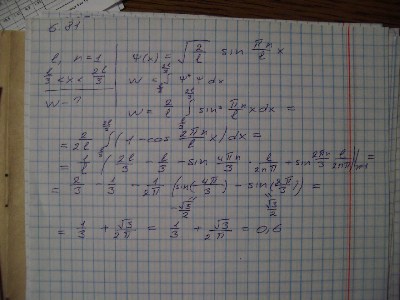 6.81
l, n = 1
l/3 < x < 2l/3
W - ?
ψ(x) = √(2/l) sin πn/l x
W = ∫ ψ* ψ dx
W = 2/l ∫ sin² πn/l x dx =
= 2/2l ∫ (1 - cos 2πn/l x) dx =
= 1/l (2l/3 - l/3 - sin 4πn/3 · l/2πn + sin 2πn/3 l/2πn)|n=1 =
= 2/3 - 1/3 - 1/2π (sin(4π/3) - sin(2π/3)) =
-√3/2 √3/2
= 1/3 + √3/2π = 1/3 + √3/2π = 0,6